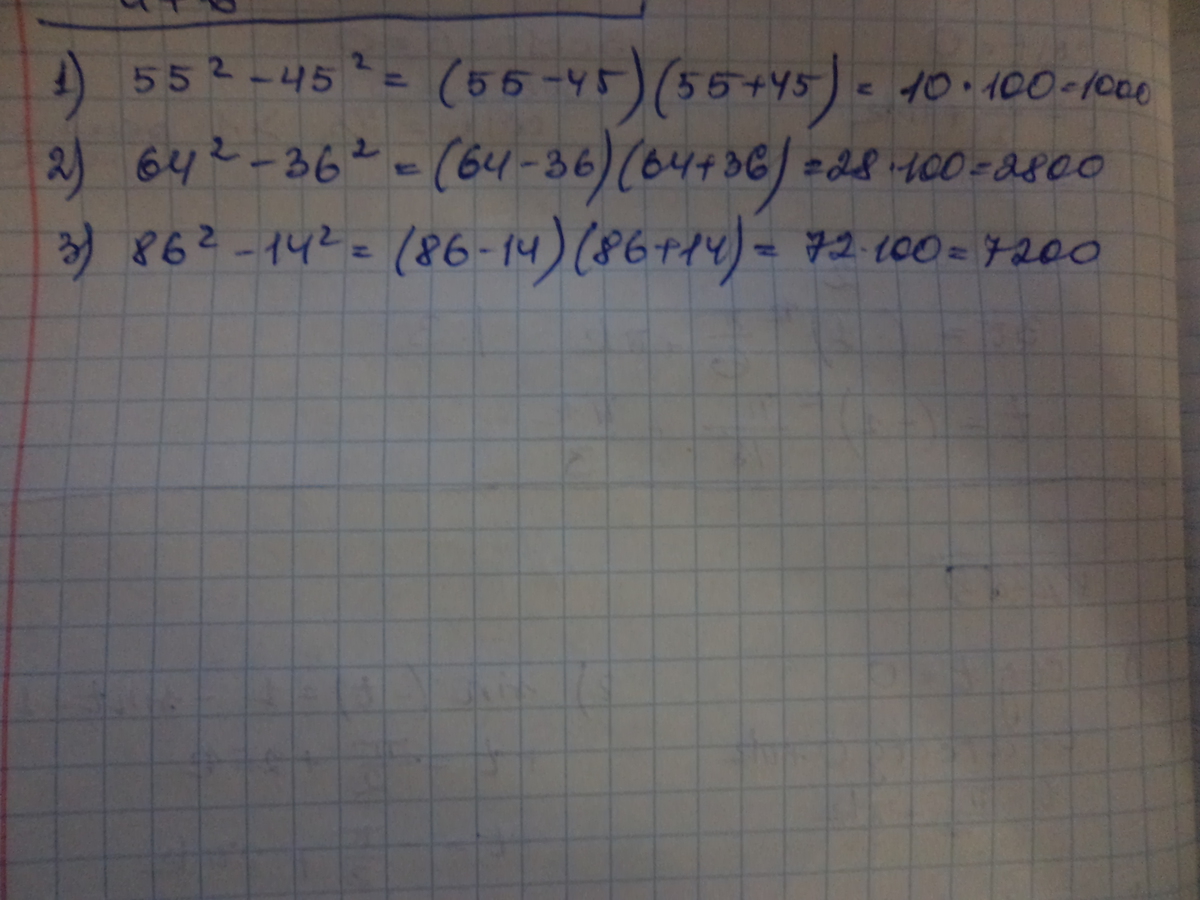 1) 55² - 45² = (55 - 45)(55 + 45) = 10 · 100 = 1000
2) 64² - 36² = (64 - 36)(64 + 36) = 28 · 100 = 2800
3) 86² - 14² = (86 - 14)(86 + 14) = 72 · 100 = 7200